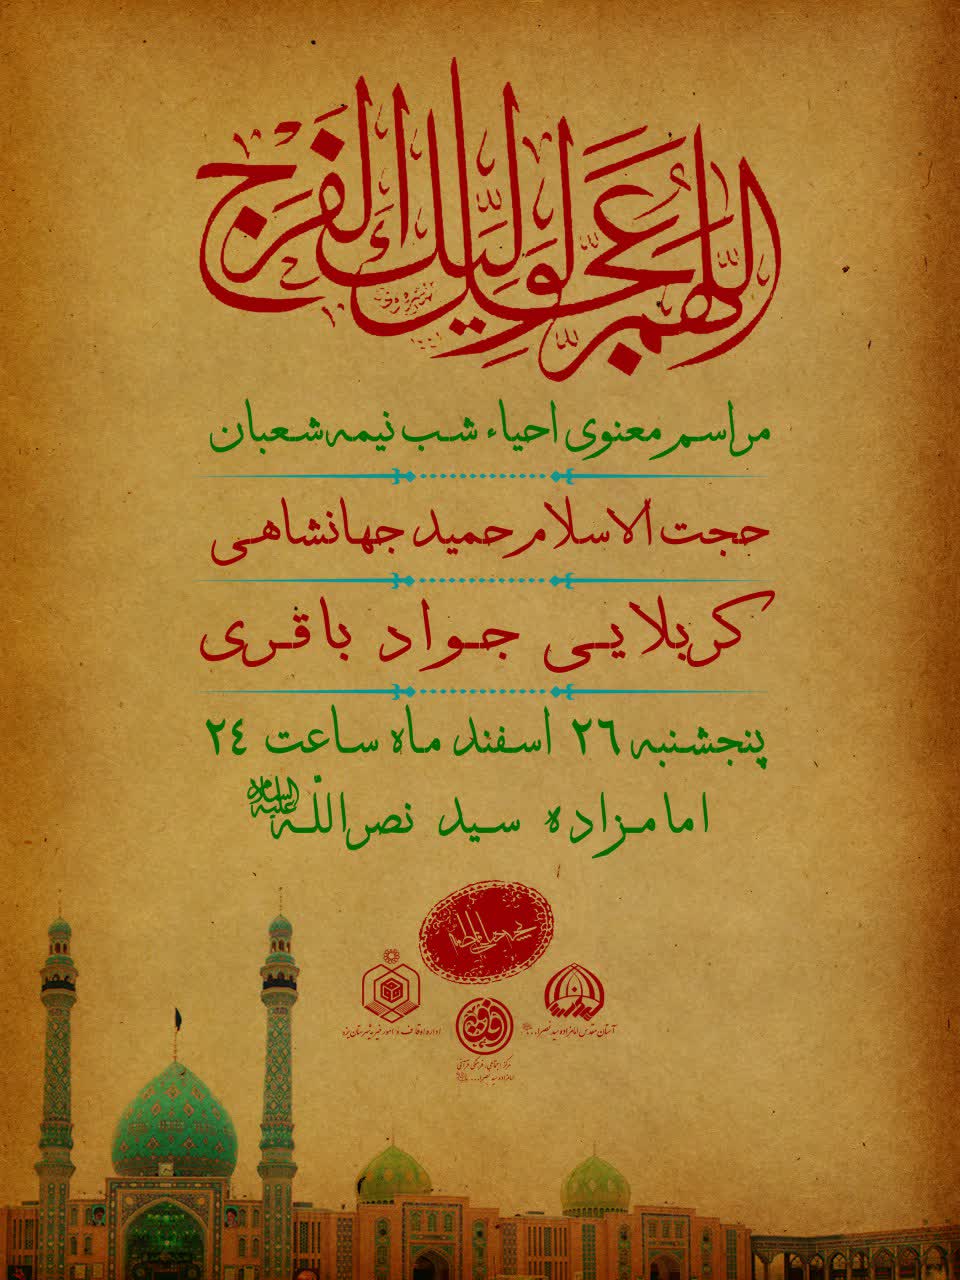 اللهم عجل لولیک الفرج
مراسم معنوی احیاء شب نیمه شعبان
حجت الاسلام حمید جهانشاهی
کربلایی جواد باقری
پنجشنبه ۲۶ اسفند ماه ساعت ۲٤
امامزاده سید نصرالله علیه السلام
آستان مقدس امامزاده سید نصرا...
اداره اوقاف و امور خیریه شهرستان یزد
مرکز اجتماعی، فرهنگی قرآنی
امامزاده سید نصرا...